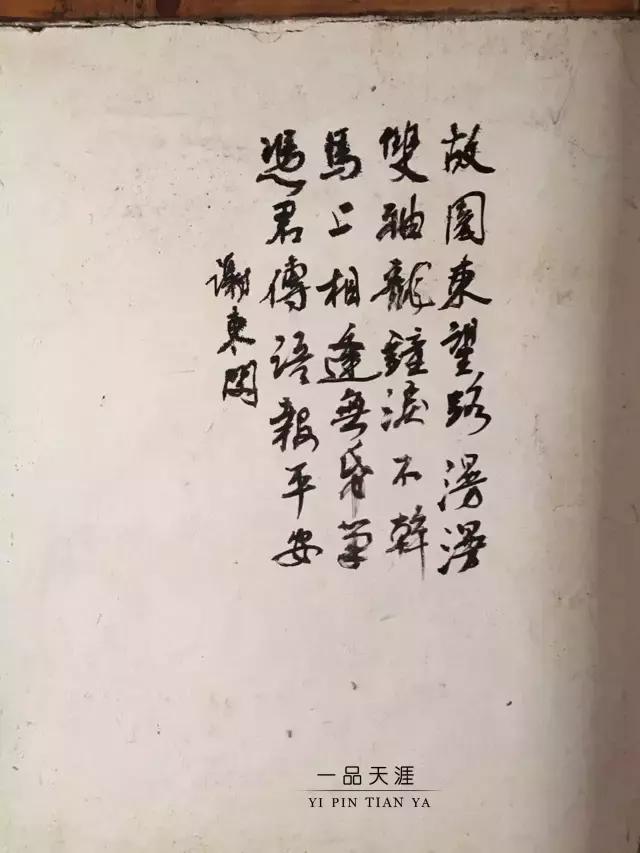 故園東望路漫漫
雙袖龍鐘淚不幹
馬上相逢無帋筆
憑君傳語報平安
謝東閔
一品天涯
YI PIN TIAN YA